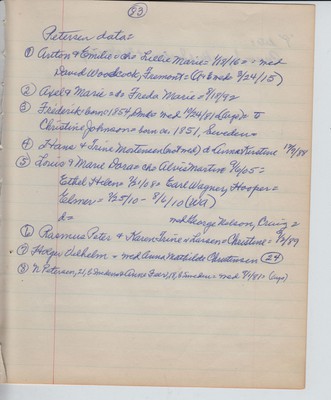 (43)
Petersen data=
① Anton & Emilie = ch= Lillie Marie = 1/18/16 = = med
David Woodcock, Fremont = (A & Esek 2/24/15)
② Axel & Marie = do Freda Marie = 9/17/92
③ Frederik born: 1854 Dmk= med 10/24/81 (Largo) = to
Christine Johnson = born ca. 1851, Sweden =
④ Hans & Trine Mortensen med Kirstine 12/9/88
⑤ Louis & Marie Dora = ch= Alvie Martin 9/6/05 =
Ethel Helen = 2/1/08 = Earl Wagner, Hooper =
Elmer = 9/25/10 - 8/6/10 (WA)
d= med George Nelson, Craig
⑥ Rasmus Peter & Karen Trine = Larsen = Christine = 9/2/89
⑦ Holger Vilhelm = med Anna Mathilde Christensen (24)
⑧ N Petersen, 21, & Anna 18, Sweden = med 9/1/81=